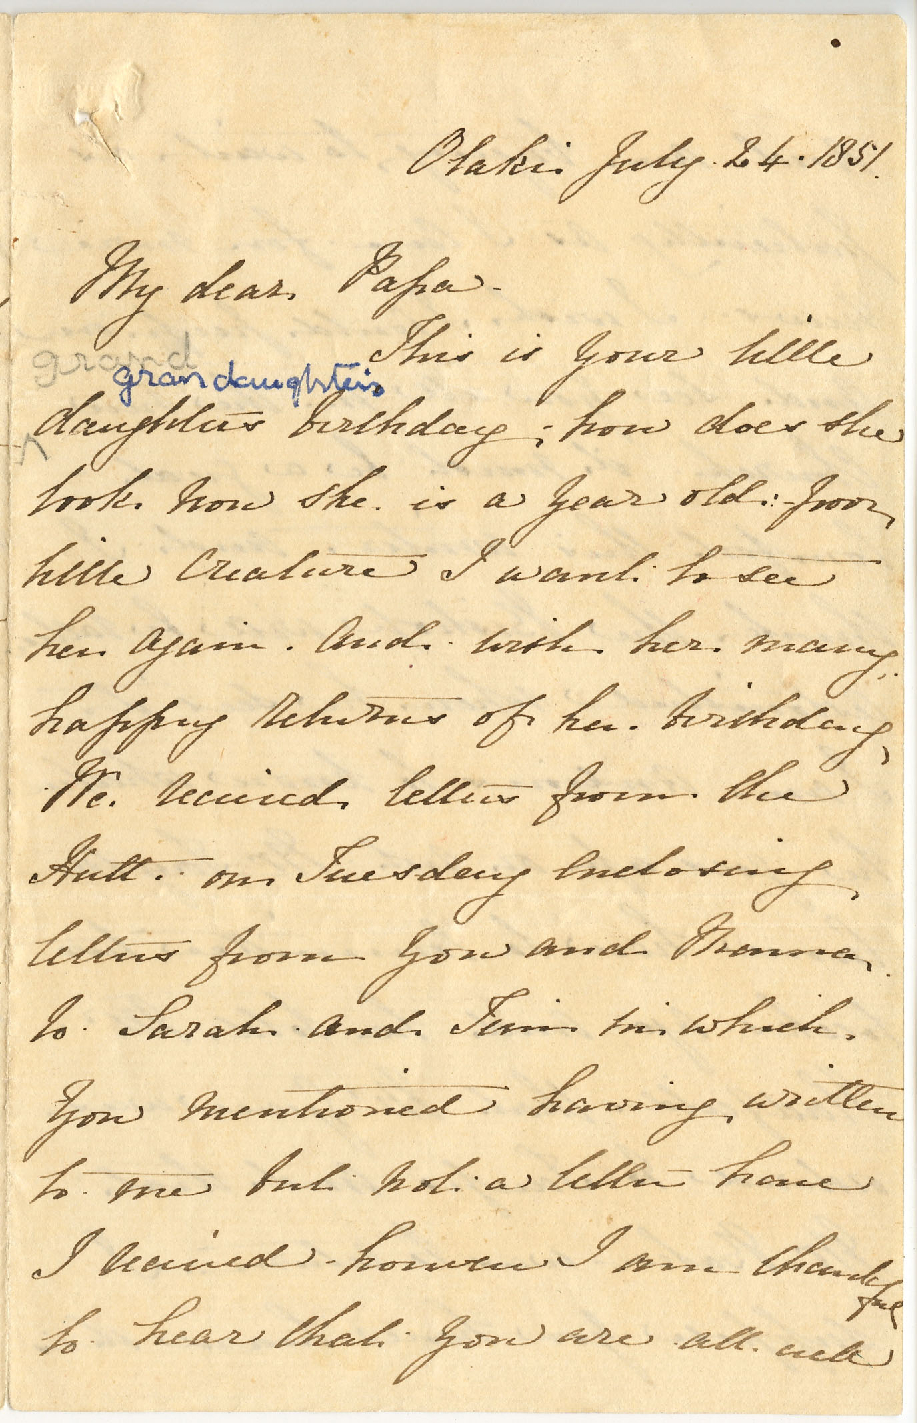 Otaki July 24. 1851.
My dear Papa
This is your little
grand
grandaughters
daughters birthday; how does she
look now she is a year old: poor
little creature I want to see
her again. And wish her many
happy returns of her birthday,
We received letters from the
Hutt. on Tuesday enclosing
letters from you and Mama
to Sarah and Tim in which
you mentioned having written
to me but not a letter have
I received however I am thankful
to hear that you are all well